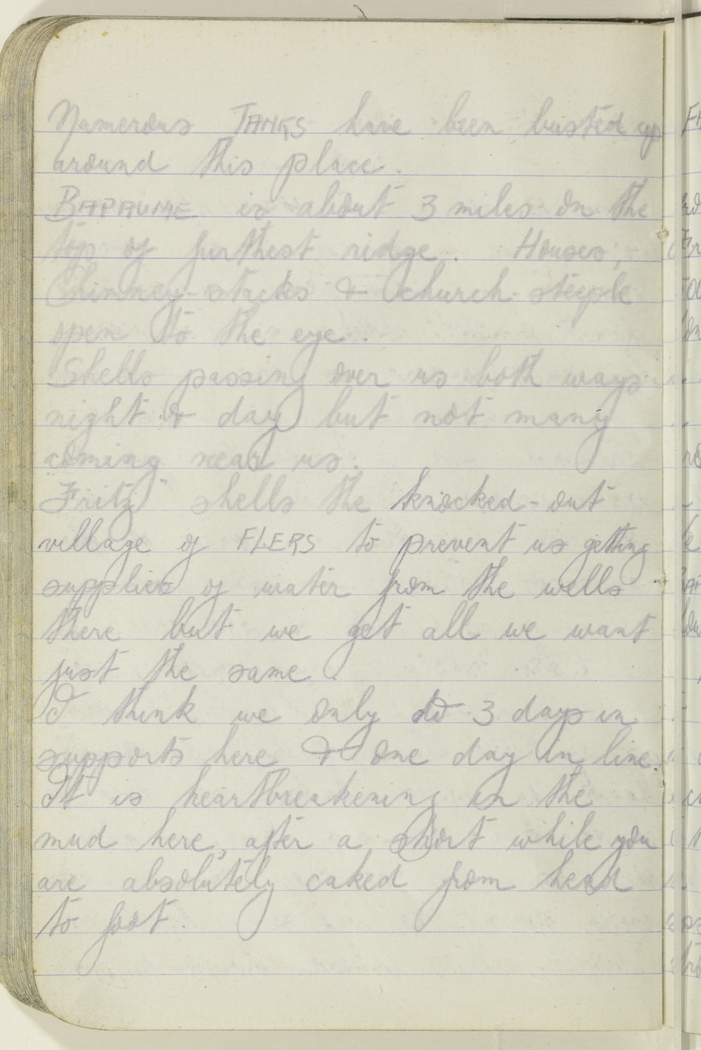 Numerous TANKS have been busted up
around this place.
BAPAUME is about 3 miles on the
top of furthest ridge. Houses,
Chimney-stacks & church-steeple
open to the eye.
Shells passing over us both ways
night & day but not many
coming near us.
Fritz shells the knocked-out
village of FLERS to prevent us getting
supplies of water from the wells
there but we get all we want
just the same
I think we only do 3 days in
supports here & one day in line.
It is heartbreakening in the
mud here, after a short while you
are absolutely caked from head
to foot.